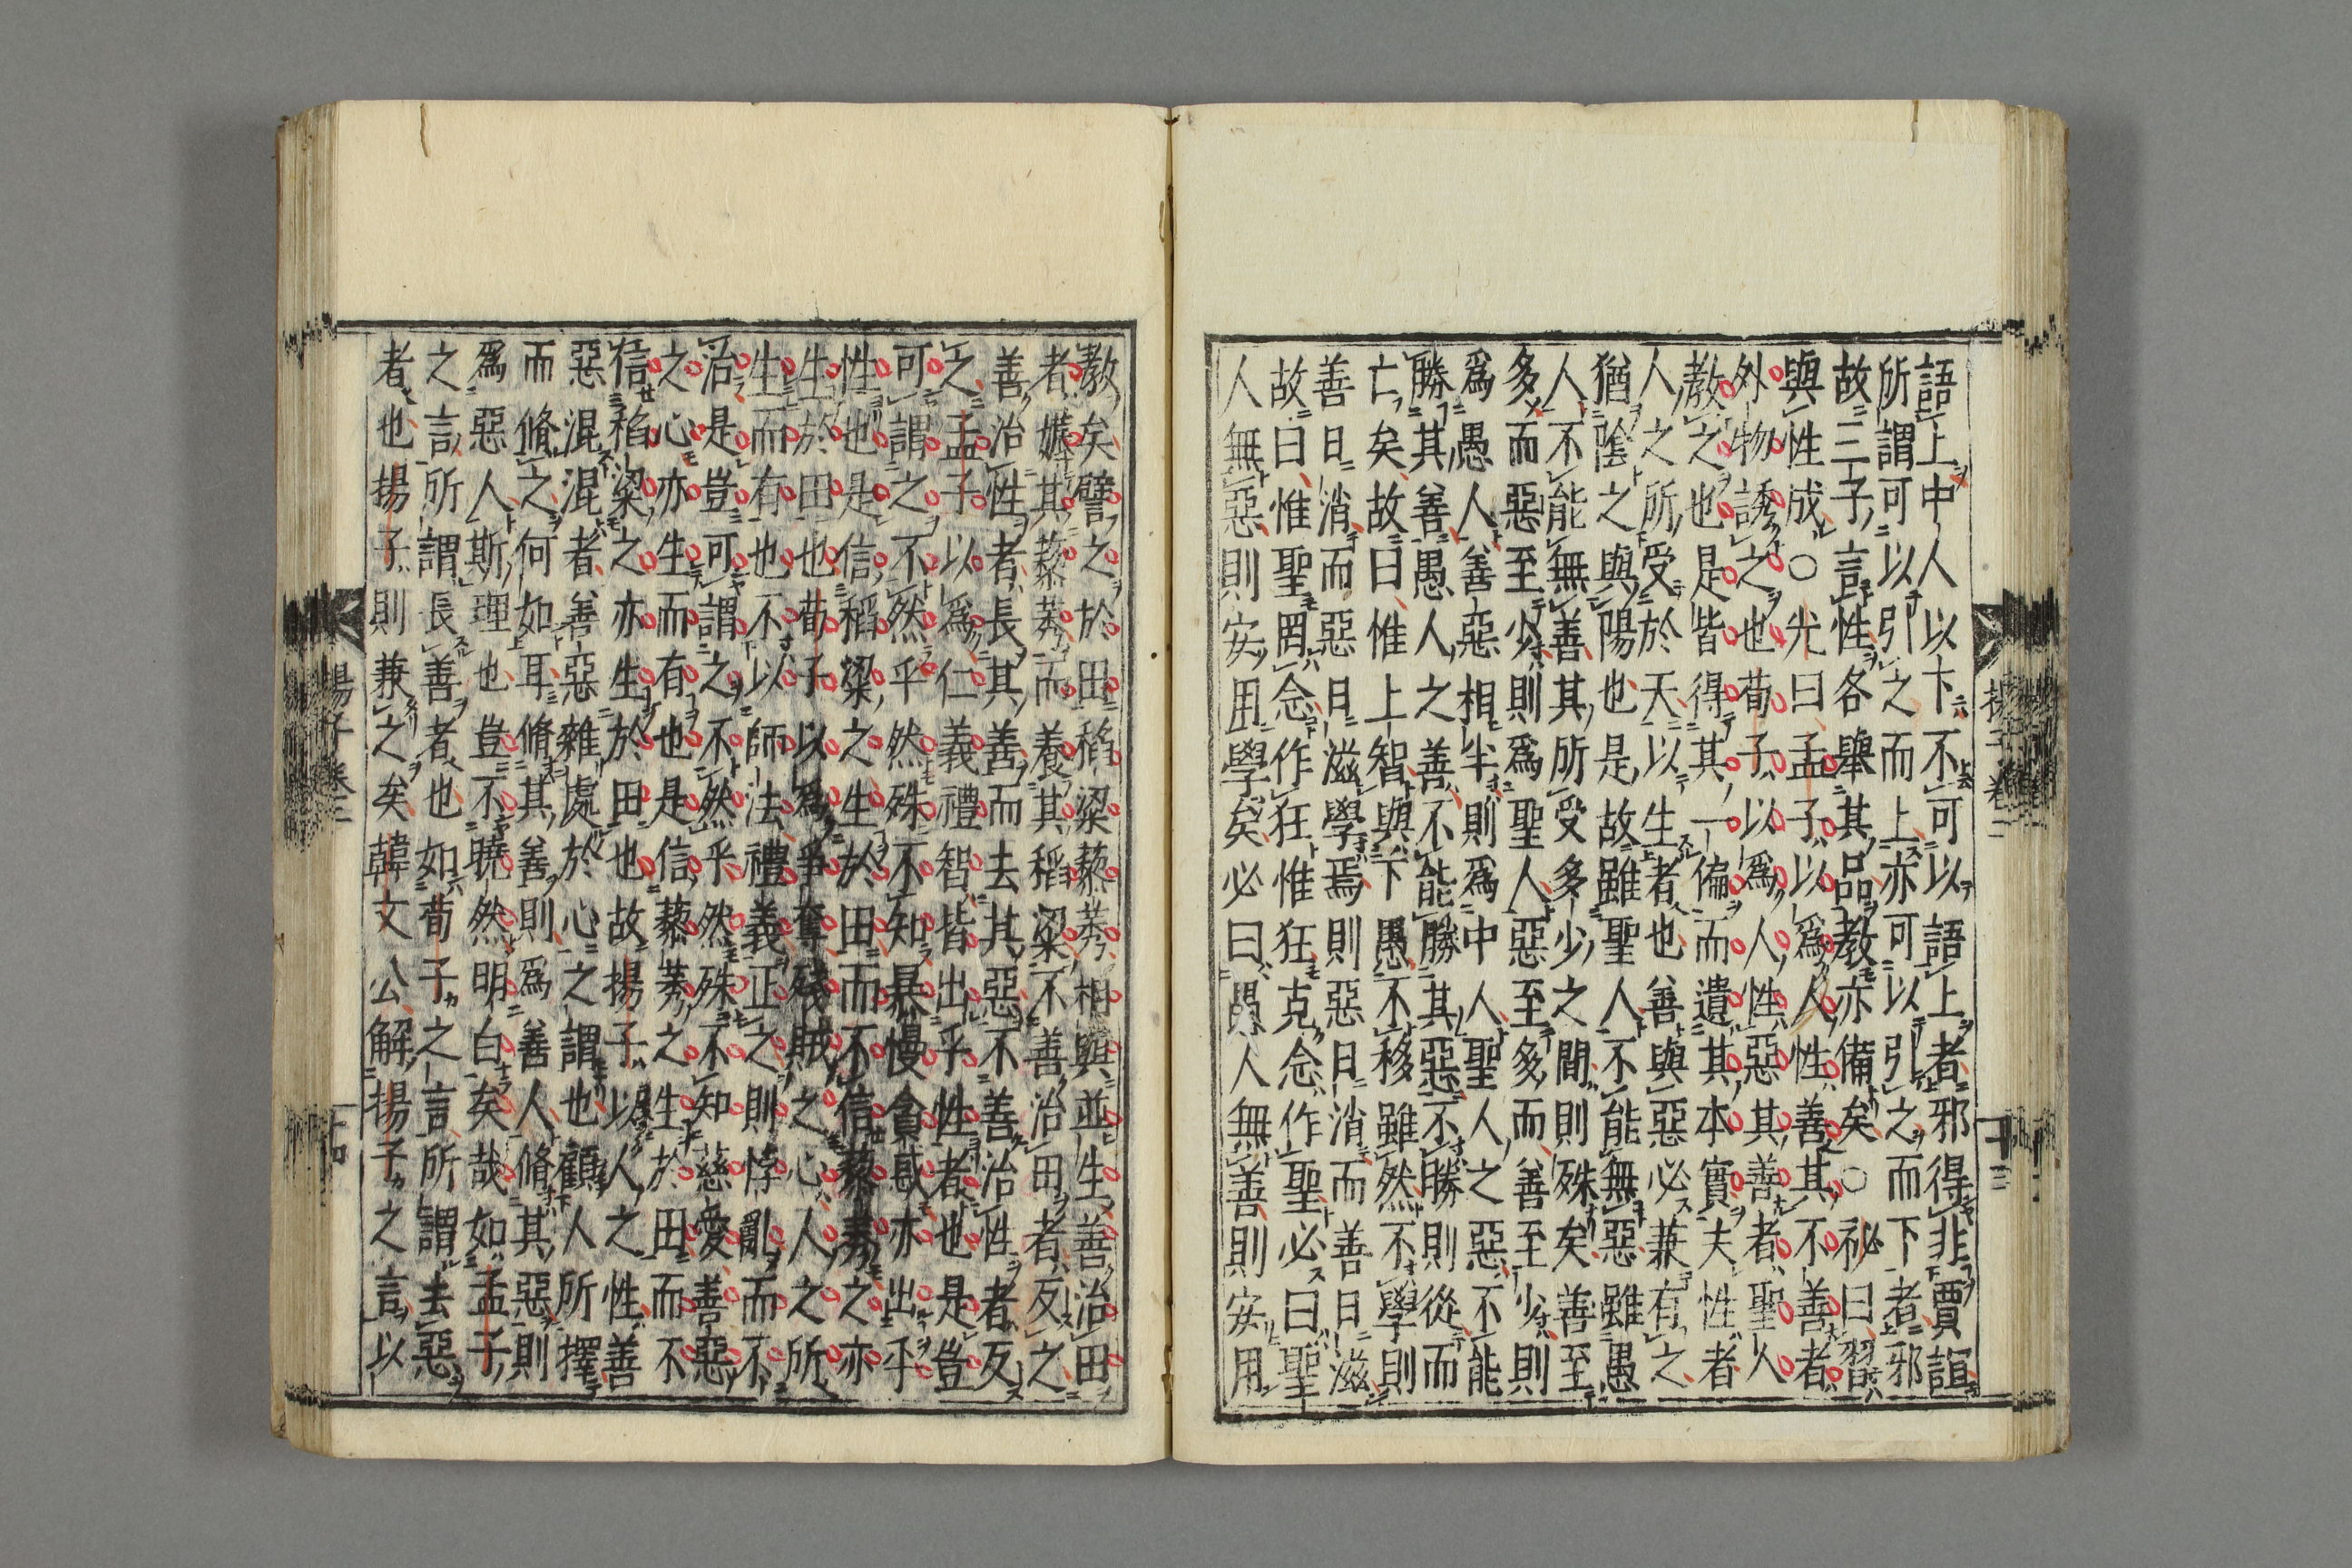 語上中人以下不可以語上者邪得非賈誼
所謂可以引之而上亦可以引之而下者邪
故三子言性各舉其品教亦備矣○祕曰習
與性成○光曰孟子以爲人性善其不善者
外物誘之也荀子以爲人性惡其善者聖人
教之也是皆得其一偏而遺其本實夫性者
人之所受於天以生者也善與惡必兼有之
猶陰之與陽也是故雖聖人不能無惡雖愚
人不能無善其所受多少之間則殊矣善至
多而惡至少則爲聖人惡至多而善至少則
爲愚人善惡相半則爲中人聖人之惡不能
勝其善愚人之善不能勝其惡不勝則從而
亡矣故曰惟上智與下愚不移雖然不學則
善日消而惡日滋學焉則惡日消而善日滋
故曰惟聖罔念作狂惟狂克念作聖必曰聖
人無惡則安用學矣必曰愚人無善則安用
揚子卷二
十三
教矣譬之於田稻粱藜莠相與並生善治田
者耨其藜莠而養其稻粱不善治田者反之
善治性者長其善而去其惡不善治性者反
之孟子以爲仁義禮智皆出乎性者也是豈
可謂之不然乎然殊不知暴慢貪惑亦出乎
性也是信稻粱之生於田而不信藜莠之亦
生於田也荀子以爲爭奪殘賊之心人之所
生而有也不以師法禮義正之則悖亂而不
治是豈可謂之不然乎然殊不知慈愛善惡
之心亦生而有也是信藜莠之生於田而不
信稻粱之亦生於田也故揚子以人之性善
惡混混者善惡雜處於心之謂也顧人所擇
而脩之何如耳脩其善則爲善人脩其惡則
爲惡人斯理也豈不曉然明白矣哉如孟子
之言所謂長善者也如荀子之言所謂去惡
者也揚子則兼之矣韓文公解揚子之言以
揚子卷三
十四